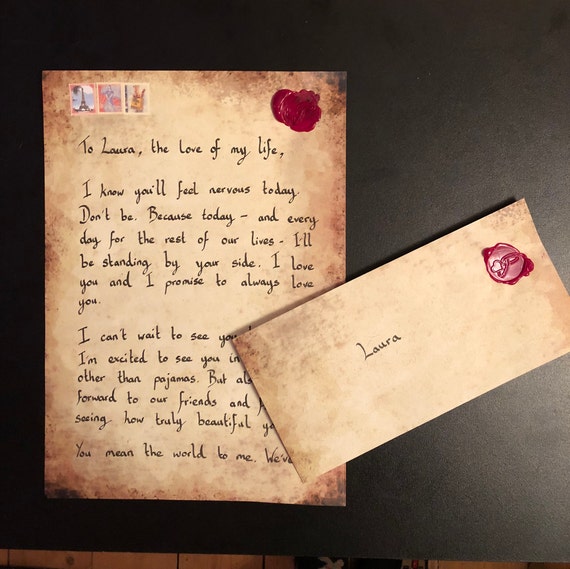 To Laura, the love of my life,
I know you'll feel nervous today.
Don't be. Because today - and every
day for the rest of our lives - I'll
be standing by your side. I love
you and I promise to always love
you.
I can't wait to see you
I'm excited to see you in
other than pajamas. But
forward to our friends and
seeing how truly beautiful
You mean the world to me. We've
Laura